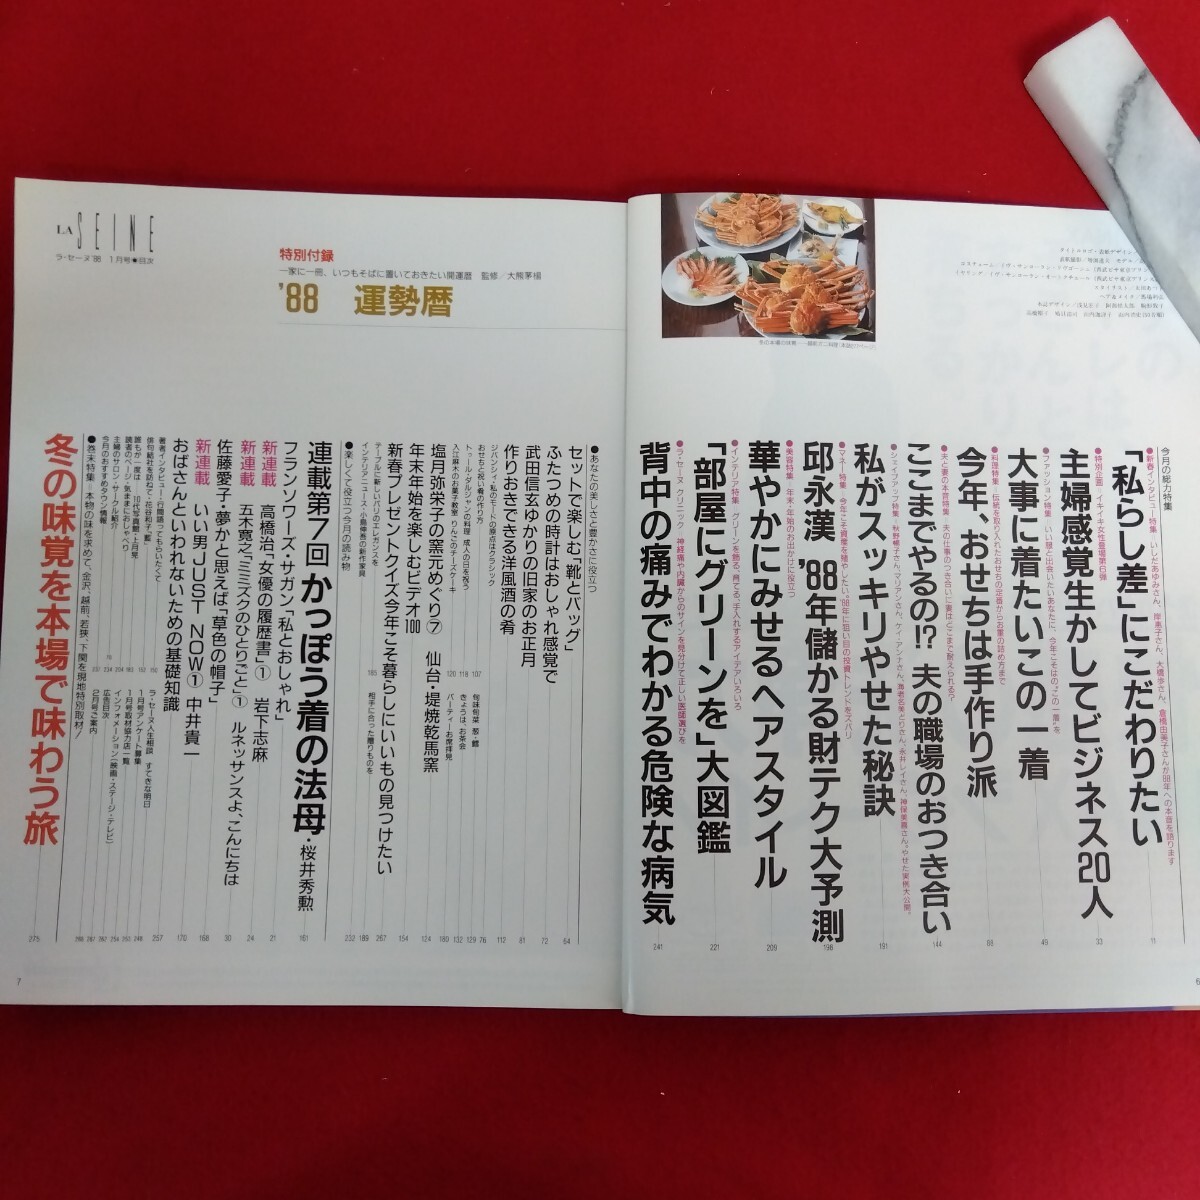 今月の総力特集
●新春インタビュー特集 いしだあゆみさん、岸恵子さん、大橋歩さん、倉橋由美子さんが88年への本音を語ります
「私らし差」にこだわりたい
11
●特別企画・イキイキ女性登場第6弾
主婦感覚生かしてビジネス20人
33
●ファッション特集 いい顔と出会いたいあなたに、今年こそはの“この一着”を
大事に着たいこの一着
49
●料理特集 伝統を取り入れたおせちの定番からお重の詰め方まで
今年、おせちは手作り派
●夫と妻の本音特集 夫の仕事のつき合いに妻はどこまで耐えられる?
ここまでやるの!? 夫の職場のおつき合い
144
私がスッキリやせた秘訣
191
●マネー特集 今年こそ資産を殖やしたい。'88年に狙い目の投資トレンドをズバリ
邱永漢 '88年儲かる財テク大予測
198
●美容特集 年末・年始のお出かけに役立つ
華やかにみせるヘアスタイル
209
●インテリア特集 グリーンを飾る、育てる、手入れするアイデアいろいろ
「部屋にグリーンを」大図鑑
221
●ラ・セーヌ クリニック 神経痛や内臓からのサインを見分けて正しい医師選びを
背中の痛みでわかる危険な病気
241
6
LA SEINE
ラ・セーヌ'88 1月号●目次
特別付録
一家に一冊、いつもそばに置いておきたい開運暦 監修/大熊茅楊
'88 運勢暦
●あなたの美しさと豊かさに役立つ
セットで楽しむ「靴とバッグ」
64
ふたつめの時計はおしゃれ感覚で
72
武田信玄ゆかりの旧家のお正月
81
作りおきできる洋風酒の肴
112
ジバンシィ・私のモードの原点はクラシック
76
おせちと祝い肴の作り方
129
トゥール・ダルジャンの料理 成人の日を祝う
132
入江麻木のお菓子教室 りんごのチーズケーキ
180
旬味旬菜 葱・鱈
107
きょうは、お茶会
118
パーティーお席拝見
120
塩月弥栄子の窯元めぐり⑦ 仙台・堤焼乾馬窯
124
年末年始を楽しむビデオ100
新春プレゼントクイズ今年こそ暮らしにいいもの見つけたい
154
●楽しくて役立つ今月の読み物
テーブルに新しいパリのエレガンスを
267
インテリアニュース・小島伸吾の新作家具
189
相手に合った贈りものを
165
連載第7回 かっぽう着の法母・桜井秀勲
161
フランソワーズ・サガン「私とおしゃれ」
21
新連載 高橋治「女優の履歴書」① 岩下志麻
24
新連載 五木寛之「ミミズクのひとりごと」① ルネッサンスよ、こんにちは
30
佐藤愛子・夢かと思えば「草色の帽子」
168
新連載 いい男JUST NOW① 中井貴一
170
おばさんといわれないための基礎知識
257
著者インタビュー・行間語ってもらいたくて
俳句結社を訪ねて・花谷和子「藍」
誰もが一度は…10代写真館・十月琴
読者のページ・気ままにおしゃべり
主婦のサロン・サークル紹介
今月のおすすめタウン情報
ラ・セーヌ人生相談 すてきな明日
1月号アンケート募集
1月号取材協力店一覧
インフォメーション(映画・ステージ・テレビ)
広告目次
2月号ご案内
●巻末特集 本物の味を求めて、金沢、越前、若狭、下関を現地特別取材!
冬の味覚を本場で味わう旅
275
7